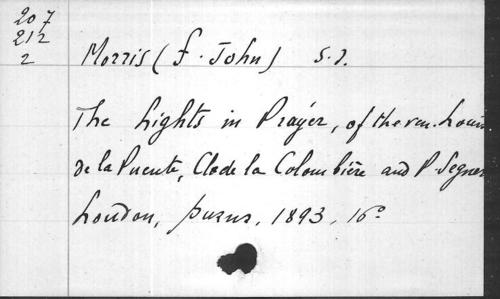 207
212
2
Morris (F. John) S.J.
The Lights in Prayer, of the ven. Louis
de la Puente, Cl. de la Colombière and P. Segner
London, Burns, 1893, 16º